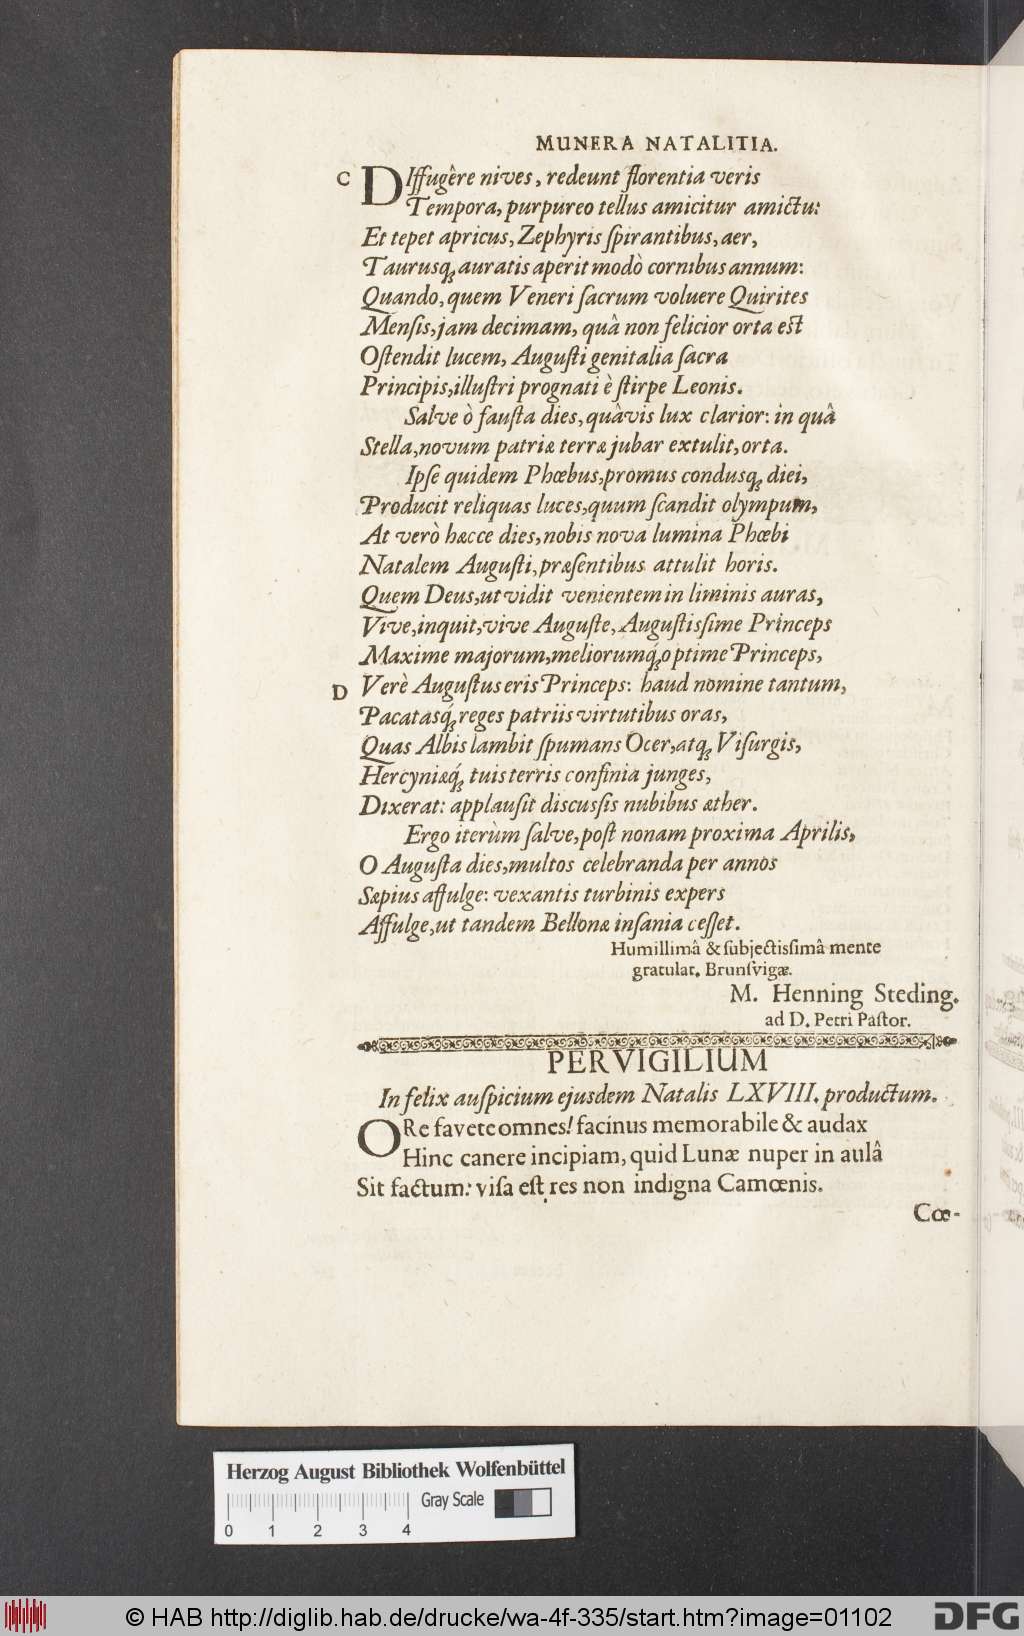 MUNERA NATALITIA.
C DIſſugêre nives, redeunt florentia veris
Tempora, purpureo tellus amicitur amictu:
Et tepet apricus, Zephyris ſpirantibus, aer,
Taurusq́ꝫ auratis aperit modò cornıbus annum:
Quando, quem Veneri ſacrum voluere Quirites
Menſis, jam decimam, quâ non felicior orta est
Oſtendit lucem, Auguſti genitalia ſacra
Principis, illuſtri prognati è ſtirpe Leonis.
Salve ò fauſta dies, quâvis lux clarior: in quâ
Stella, novum patriæ terræ jubar extulit, orta.
Ipſe quidem Phœbus, promus condusqꝫ diei,
Producit reliquas luces, quum ſcandit olympum,
At verò hæcce dies, nobis nova lumina Phœbi
Natalem Auguſti, præſentibus attulit horis.
Quem Deus, ut vidit venientem in liminis auras,
Vive, inquit, vive Auguſte, Auguſtisſime Princeps
Maxime majorum, meliorumq́ꝫ optime Princeps,
D Verè Auguſtus eris Princeps: haud nomine tantum,
Pacatasq́ꝫ reges patriis virtutibus oras,
Quas Albis lambit ſpumans Ocer, atqꝫ Viſurgis,
Hercyniæq́ꝫ tuis terris confinia junges,
Dıxerat: applauſit discusſis nubibus æther.
Ergo iterùm ſalve, poſt nonam proxima Aprilis,
O Auguſta dies, multos celebranda per annos
Sæpius affulge: vexantis turbinis expers
Affulge, ut tandem Bellonæ inſania ceſſet.
Humillimâ & ſubjectisſimâ mente
gratulat. Brunſvigæ.
M. Henning Steding.
ad D. Petri Paſtor.
PERVIGILIUM
In felix auſpicium ejusdem Natalis LXVIII. productum.
ORe favete omnes! facinus memorabile & audax
Hinc canere incipiam, quid Lunæ nuper in aulâ
Sit factum: viſa eſt res non indigna Camœnis.
Cœ-
Herzog August Bibliothek Wolfenbüttel
Gray Scale
0 1 2 3 4
© HAB http://diglib.hab.de/drucke/wa-4f-335/start.htm?image=01102
DFG